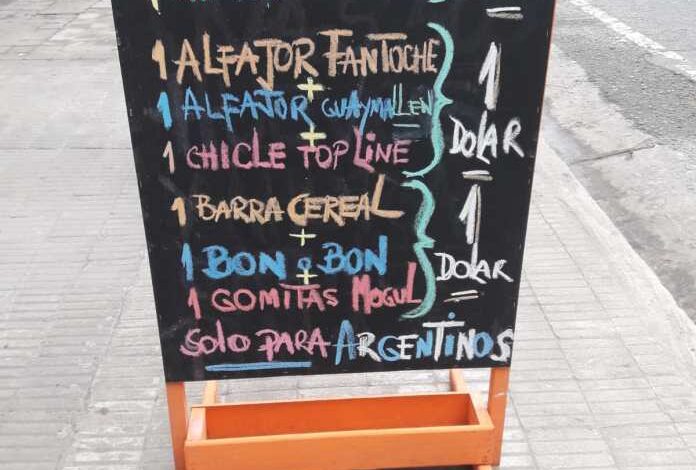 1 ALFAJOR FANTOCHE
+
1 ALFAJOR GUAYMALLEN
+
1 CHICLE TOP LINE
1 DOLAR
1 BARRA CEREAL
+
1 BON o BON
+
1 GOMITAS MOGUL
1 DOLAR
SOLO PARA ARGENTINOS